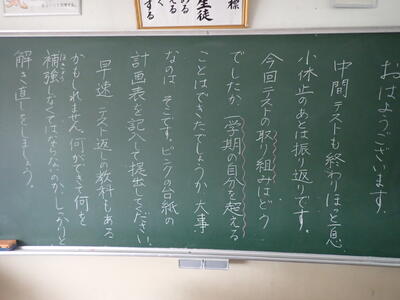 標
生徒
める
える
する
おはようございます。
中間テストも終わりほっと一息、
小休止のあとは振り返りです。
今回テストの取り組みはどう
でしたか、一学期の自分を超える
ことはできたでしょうか。大事
なのは そこです。ピンクの台紙の
計画表を記入して提出してください。
早速、テスト返しの教科もある
かもしれません。何ができて何を
補強しなくてはならないのか、しっかりと
ほきょう
解き直しをしましょう。